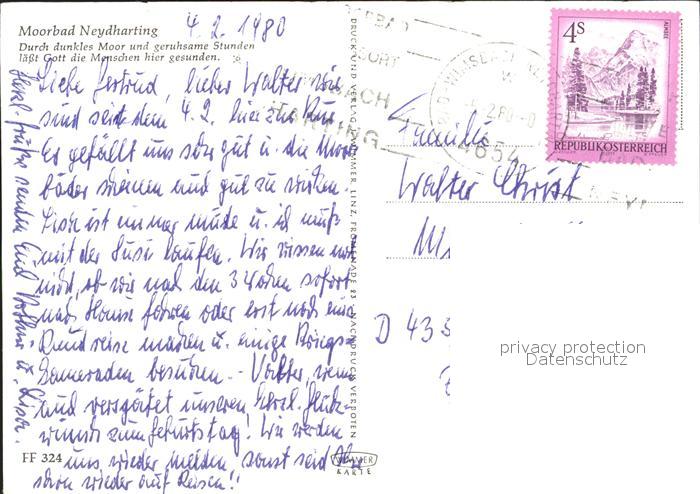 Moorbad Neydharting
Durch dunkles Moor und geruhsame Stunden
läßt Gott die Menschen hier gesunden.
4. 2. 1980
Liebe Gertrud, lieber Walter wir
sind seit dem 4. 2. hier zur Kur
Es gefällt uns sehr gut u. die Moor
bäder scheinen auch gut zu wirken.
Lisa ist immer müde u. ich muß
mit der Susi laufen. Wir wissen noch
nicht, ob wir nach den 3 Wochen sofort
nach Hause fahren oder erst noch eine
Rundreise machen u. einige Kriegs-
kameraden besuchen. - Walter, wenn
auch verspätet unseren herzl. Glück-
wunsch zum Geburtstag! Wir werden
uns wieder melden, sonst seid Ihr
schon wieder auf Reisen!!
Herzl. Grüße senden Euch u. Lisa.
FF 324
DRUCK UND VERLAG LINZ, PROMENADE 23 NACHDRUCK VERBOTEN
KARTE
4S
ALMSEE
REPUBLIK ÖSTERREICH
4654
Familie
Walter Christ
D 43
privacy protection
Datenschutz